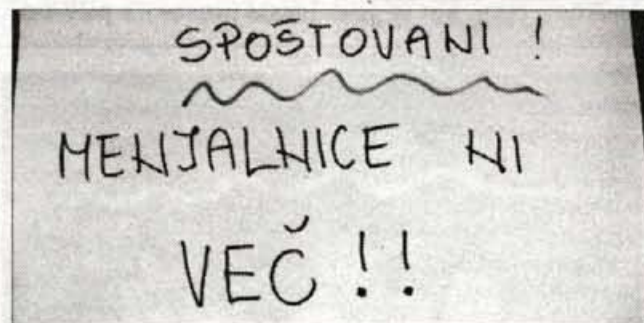 SPOŠTOVANI !
MENJALNICE NI
VEČ !!